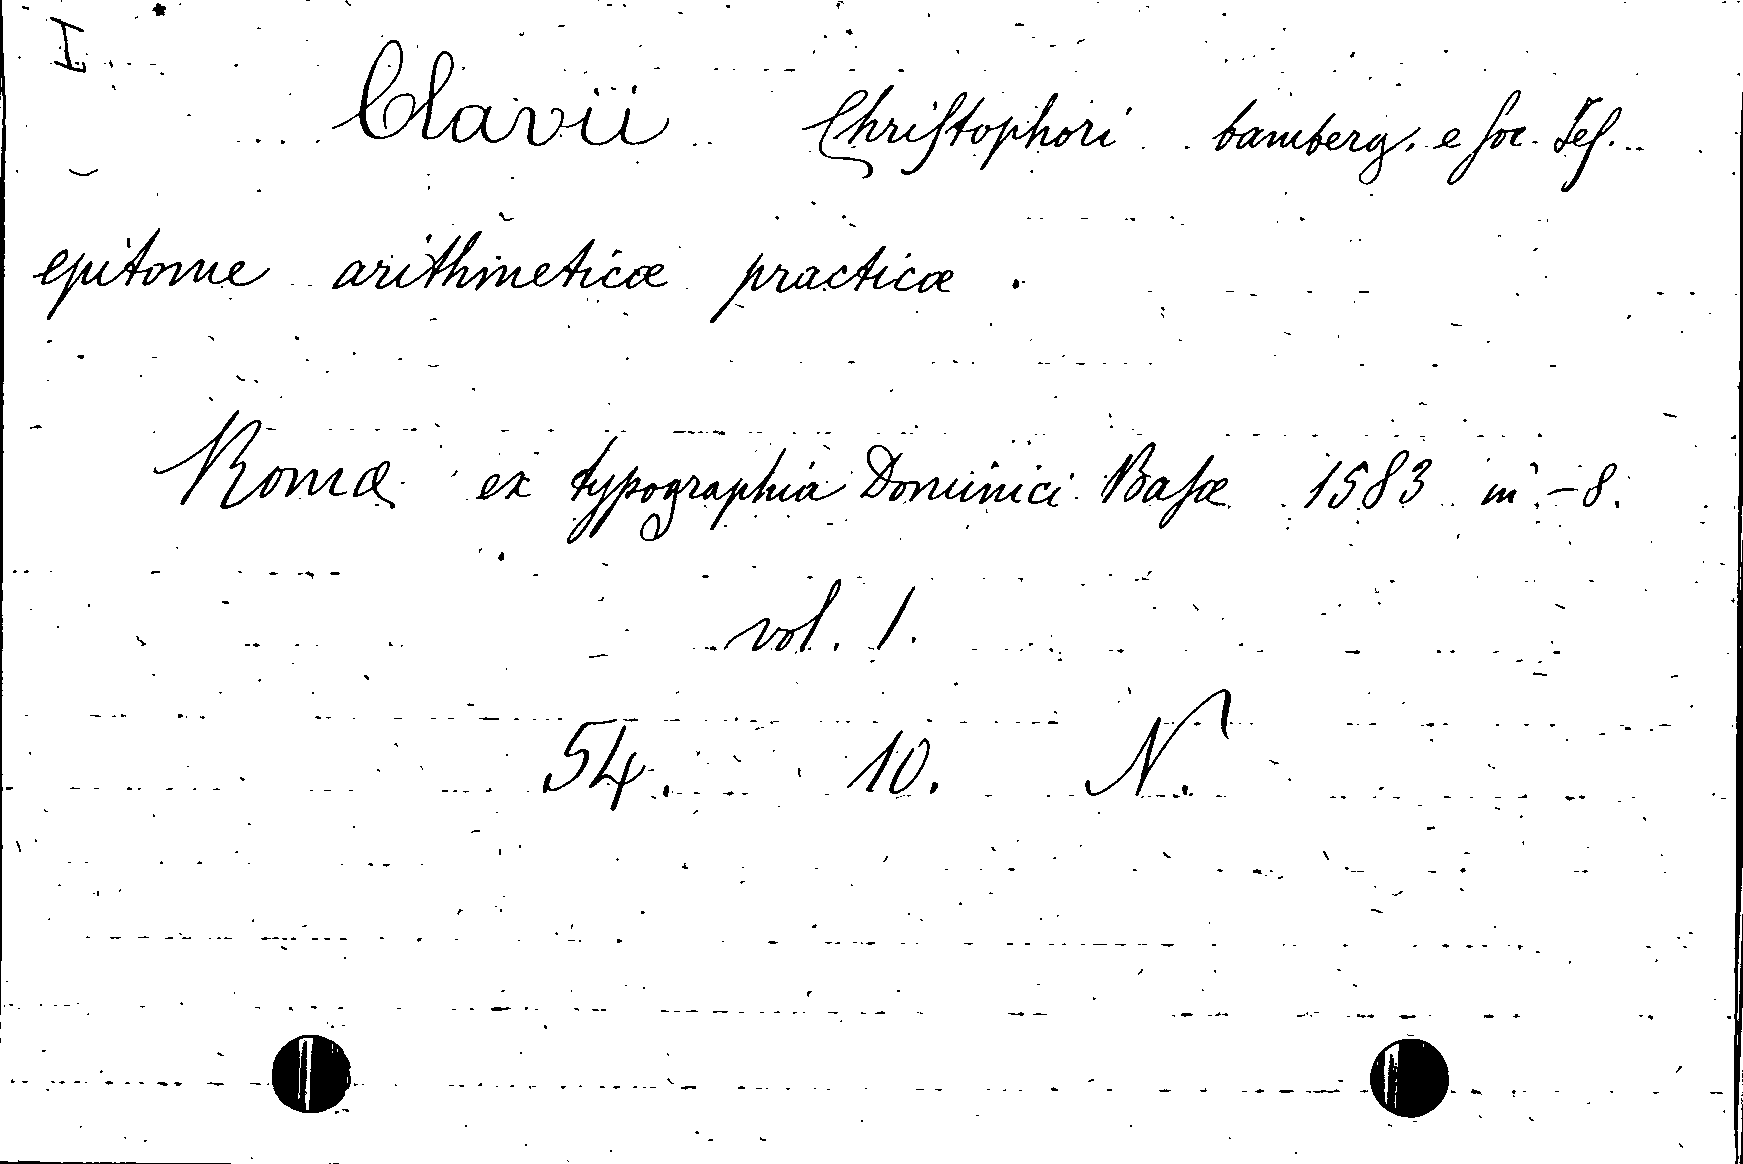 I
Clavii Christophori bamberg. e soc. Jes.
epitome arithmeticæ practicæ.
Romæ ex typographia Dominici Basæ 1583 in-8.
vol. 1.
54. 10. N.